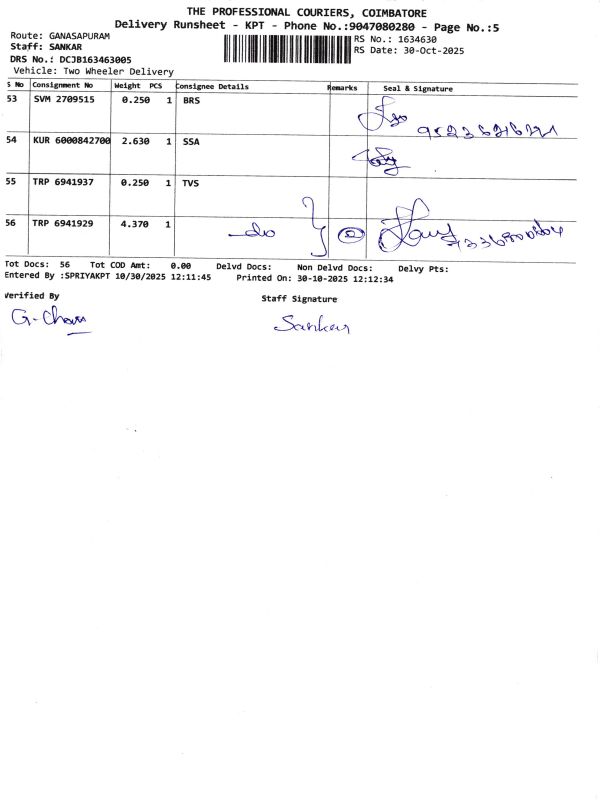 THE PROFESSIONAL COURIERS, COIMBATORE
Delivery Runsheet - KPT - Phone No.:9047080280 - Page No.:5
Route: GANASAPURAM
Staff: SANKAR
DRS No.: DCJB163463005
Vehicle: Two Wheeler Delivery
RS No.: 1634630
RS Date: 30-Oct-2025
S No Consignment No Weight PCS Consignee Details Remarks Seal & Signature
53 SVM 2709515 0.250 1 BRS
54 KUR 6000842700 2.630 1 SSA
55 TRP 6941937 0.250 1 TVS
56 TRP 6941929 4.370 1 do
Tot Docs: 56 Tot COD Amt: 0.00 Delvd Docs: Non Delvd Docs: Delvy Pts:
Entered By :SPRIYAKPT 10/30/2025 12:11:45 Printed On: 30-10-2025 12:12:34
Verified By Staff Signature
Sankar